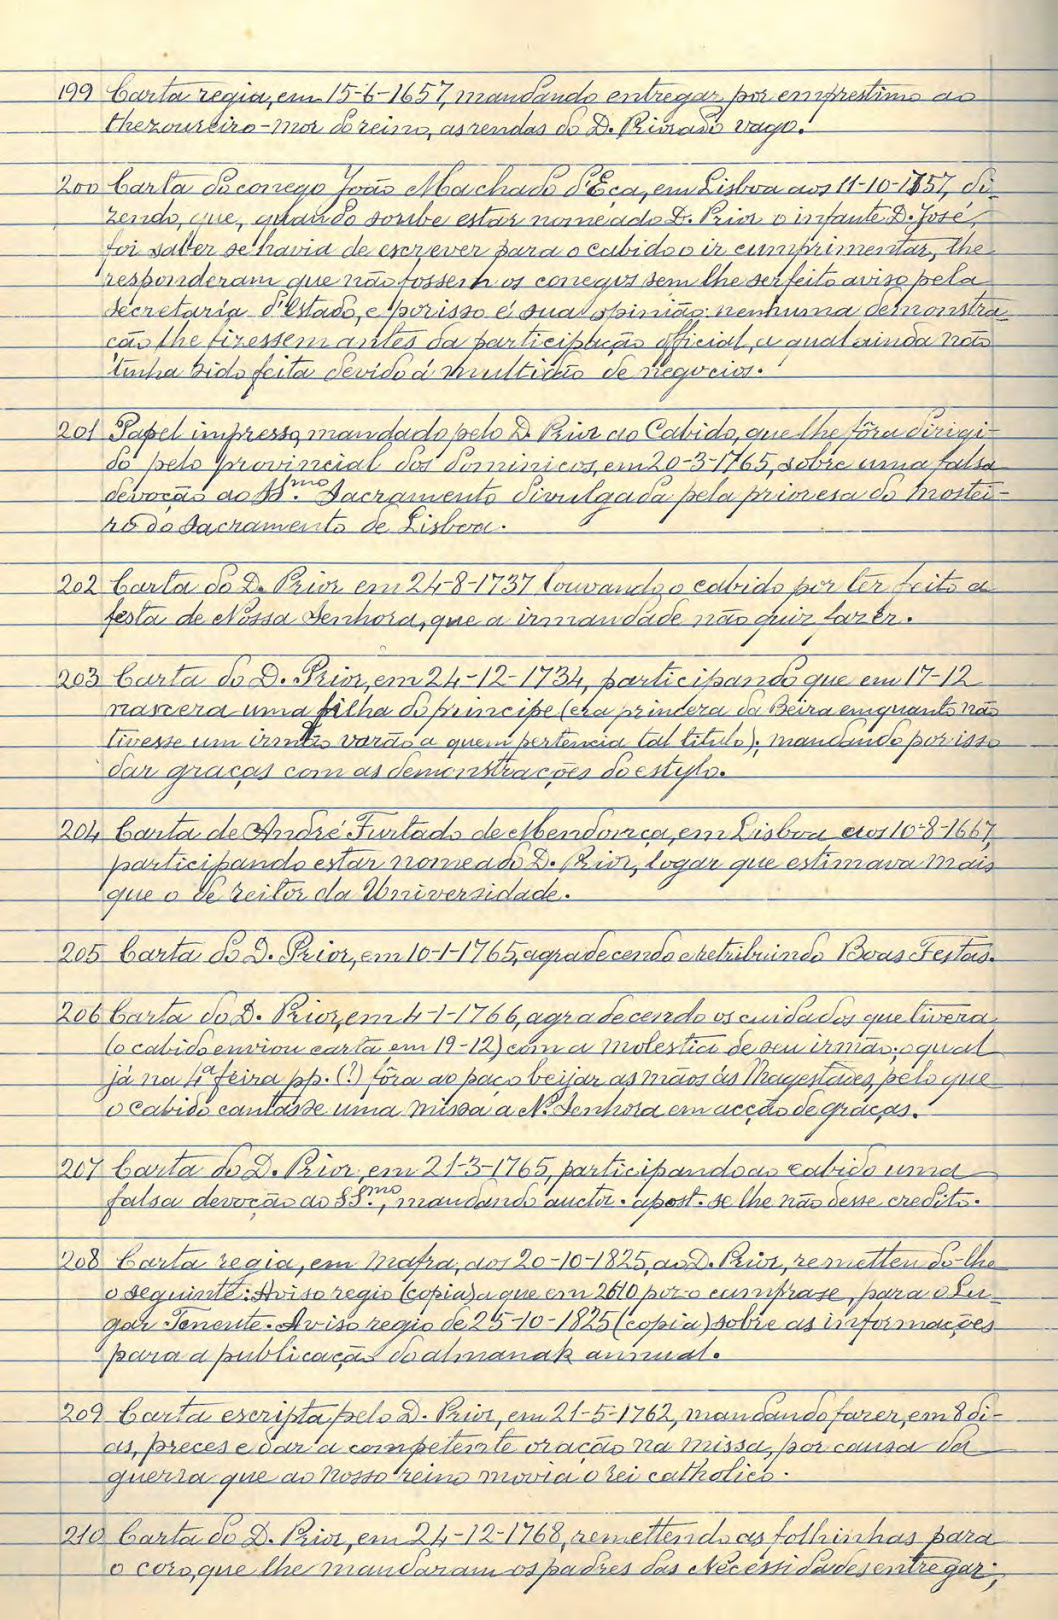 199 Carta regia, em 15-6-1657, mandando entregar, por emprestimo ao
thezoureiro-mor do reino, as rendas do D. Priorado vago.
200 Carta do conego João Machado d'Eça, em Lisboa aos 11-10-1757, di-
zendo, que, quando soube estar nomeado D. Prior o infante D. José,
foi saber se havia de escrever para o cabido o ir cumprimentar, lhe
responderam que não fossem os conegos sem lhe ser feito aviso pela
secretaria d'Estado, e por isso é sua opinião: nenhuma demonstra-
ção lhe fizessem antes da participação official, a qual ainda não
tinha sido feita devido á multidão de negocios.
201 Papel impresso, mandado pelo D. Prior ao Cabido, que lhe fôra dirigi-
do pelo provincial dos dominicos, em 20-3-1765, sobre uma falsa
devoção ao SS.mo Sacramento divulgada pela prioresa do mostei-
ro do Sacramento de Lisboa.
202 Carta do D. Prior em 24-8-1737 louvando o cabido por ter feito a
festa de Nossa Senhora, que a irmandade não quiz fazer.
203 Carta do D. Prior, em 24-12-1734, participando que em 17-12
nascera uma filha do principe (era princeza da Beira emquanto não
tivesse um irmão varão a quem pertencia tal titulo); mandando por isso
dar graças com as demonstrações do estylo.
204 Carta de André Furtado de Mendonça, em Lisboa aos 10-8-1667,
participando estar nomeado D. Prior, logar que estimava mais
que o de reitor da Universidade.
205 Carta do D. Prior, em 10-1-1765, agradecendo e retribuindo Boas Festas.
206 Carta do D. Prior, em 4-1-1766, agradecendo os cuidados que tivera
(o cabido enviou carta em 19-12) com a molestia de seu irmão; o qual
já na 4ª feira pp. (?) fôra ao paço beijar as mãos ás Magestades, pelo que
o cabido cantasse uma missa a Nª Senhora em acção de graças.
207 Carta do D. Prior, em 21-3-1765, participando ao cabido uma
falsa devoção ao SS.mo, mandando auctor. apost. se lhe não desse credito.
208 Carta regia, em Mafra, aos 20-10-1825, ao D. Prior, remettendo-lhe
o seguinte: Aviso regio (copia) a que em 26-10 por-o cumpra-se, para o Lu-
gar Tenente. Aviso regio de 25-10-1825 (copia) sobre as informações
para a publicação do almanak annual.
209 Carta escripta pelo D. Prior, em 21-5-1762, mandando fazer, em 8 di-
as, preces e dar a competente oração na missa, por causa da
guerra que ao nosso reino movia o rei catholico.
210 Carta do D. Prior, em 24-12-1768, remettendo as folhinhas para
o coro, que lhe mandaram os padres das Necessidades entregar;